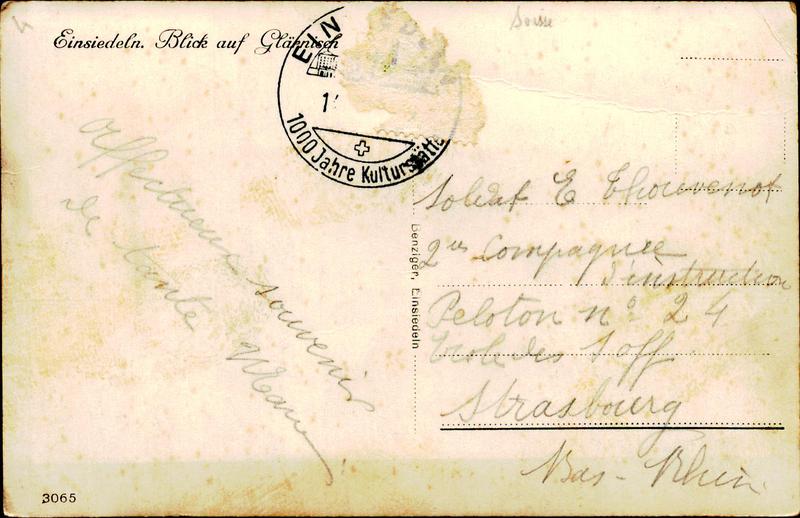 4
Suisse
Einsiedeln. Blick auf Glärnisch
EIN
1
1000 Jahre Kulturstätte
Affectueux souvenir
de tante Marie
Benziger, Einsiedeln
Soldat E Thouvenot
2me Compagnie
d'instruction
Peloton n° 24
Ecole des S off
Strasbourg
Bas-Rhin
3065